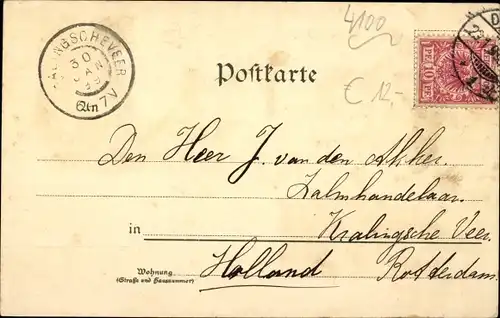 4100
Postkarte
RALINGSCHEVEER
30
JAN
99
7V
PF 10 PF
€ 12,-
Den Heer J. van den Akker.
Zalmhandelaar.
in Kralingsche Veer.
Wohnung
(Straße und Hausnummer)
Holland Rotterdam.